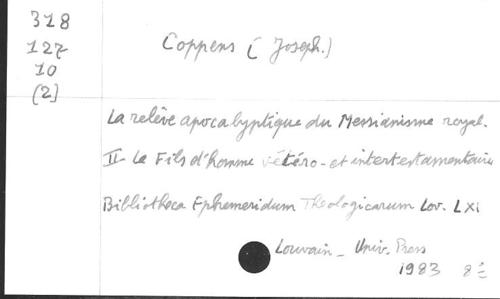 318
127
10
(2)
Coppens (Joseph.)
La relève apocalyptique du Messianisme royal.
II - Le Fils d'homme vétéro- et intertestamentaire
Bibliotheca Ephemeridum Theologicarum Lov. LXI
Louvain - Univ. Press
1983 8º